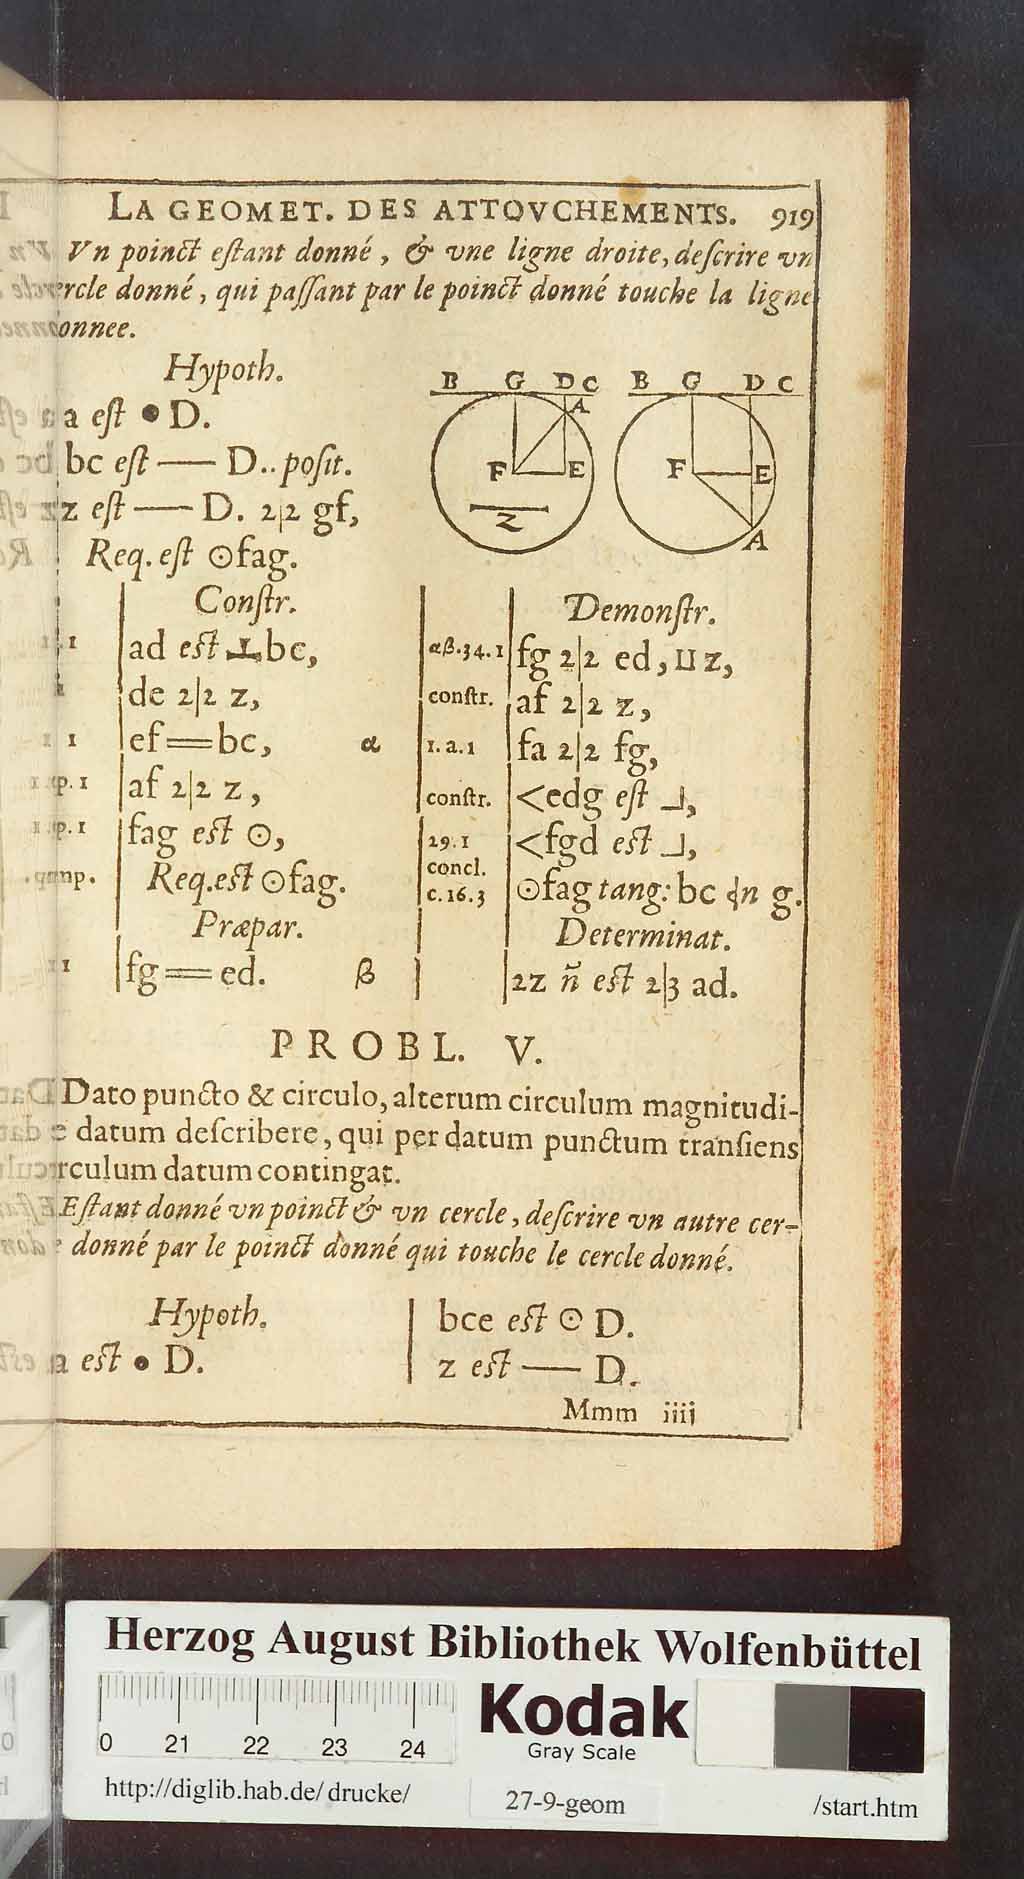 LA GEOMET. DES ATTOVCHEMENTS. 919
Vn poinct eſtant donné, & vne ligne droite, deſcrire vn
rcle donné, qui paſſant par le poinct donné touche la ligne
onnee.
Hypoth.
a eſt • D.
bc eſt — D.. poſit.
z eſt — D. 2|2 gf,
Req. eſt ⊙fag.
B G D C B G D C
A
F E F E
Z
A
Conſtr.
1 ad est ⊥bc,
de 2|2 z,
1 ef═bc, α
p. 1 af 2|2 z,
p. 1 fag est ⊙,
np. Req. est ⊙fag.
Præpar.
1 fg═ed. β
Demonſtr.
αβ.34.1 fg 2|2 ed, ⊔ z,
conſtr. af 2|2 z,
1. a. 1 fa 2|2 fg,
conſtr. <edg eſt ⅃,
29. 1 <fgd est ⅃,
concl.
c. 16. 3 ⊙fag tang: bc in g.
Determinat.
2z n̄ est 2|3 ad.
PROBL. V.
Dato puncto & circulo, alterum circulum magnitudi-
e datum deſcribere, qui per datum punctum tranſiens
rculum datum contingat.
Eſtant donné vn poinct & vn cercle, deſcrire vn autre cer-
donné par le poinct donné qui touche le cercle donné.
Hypoth.
a est • D.
bce est ⊙ D.
z est — D.
Mmm iiij
Herzog August Bibliothek Wolfenbüttel
0 21 22 23 24
Kodak
Gray Scale
http://diglib.hab.de/drucke/ 27-9-geom /start.htm